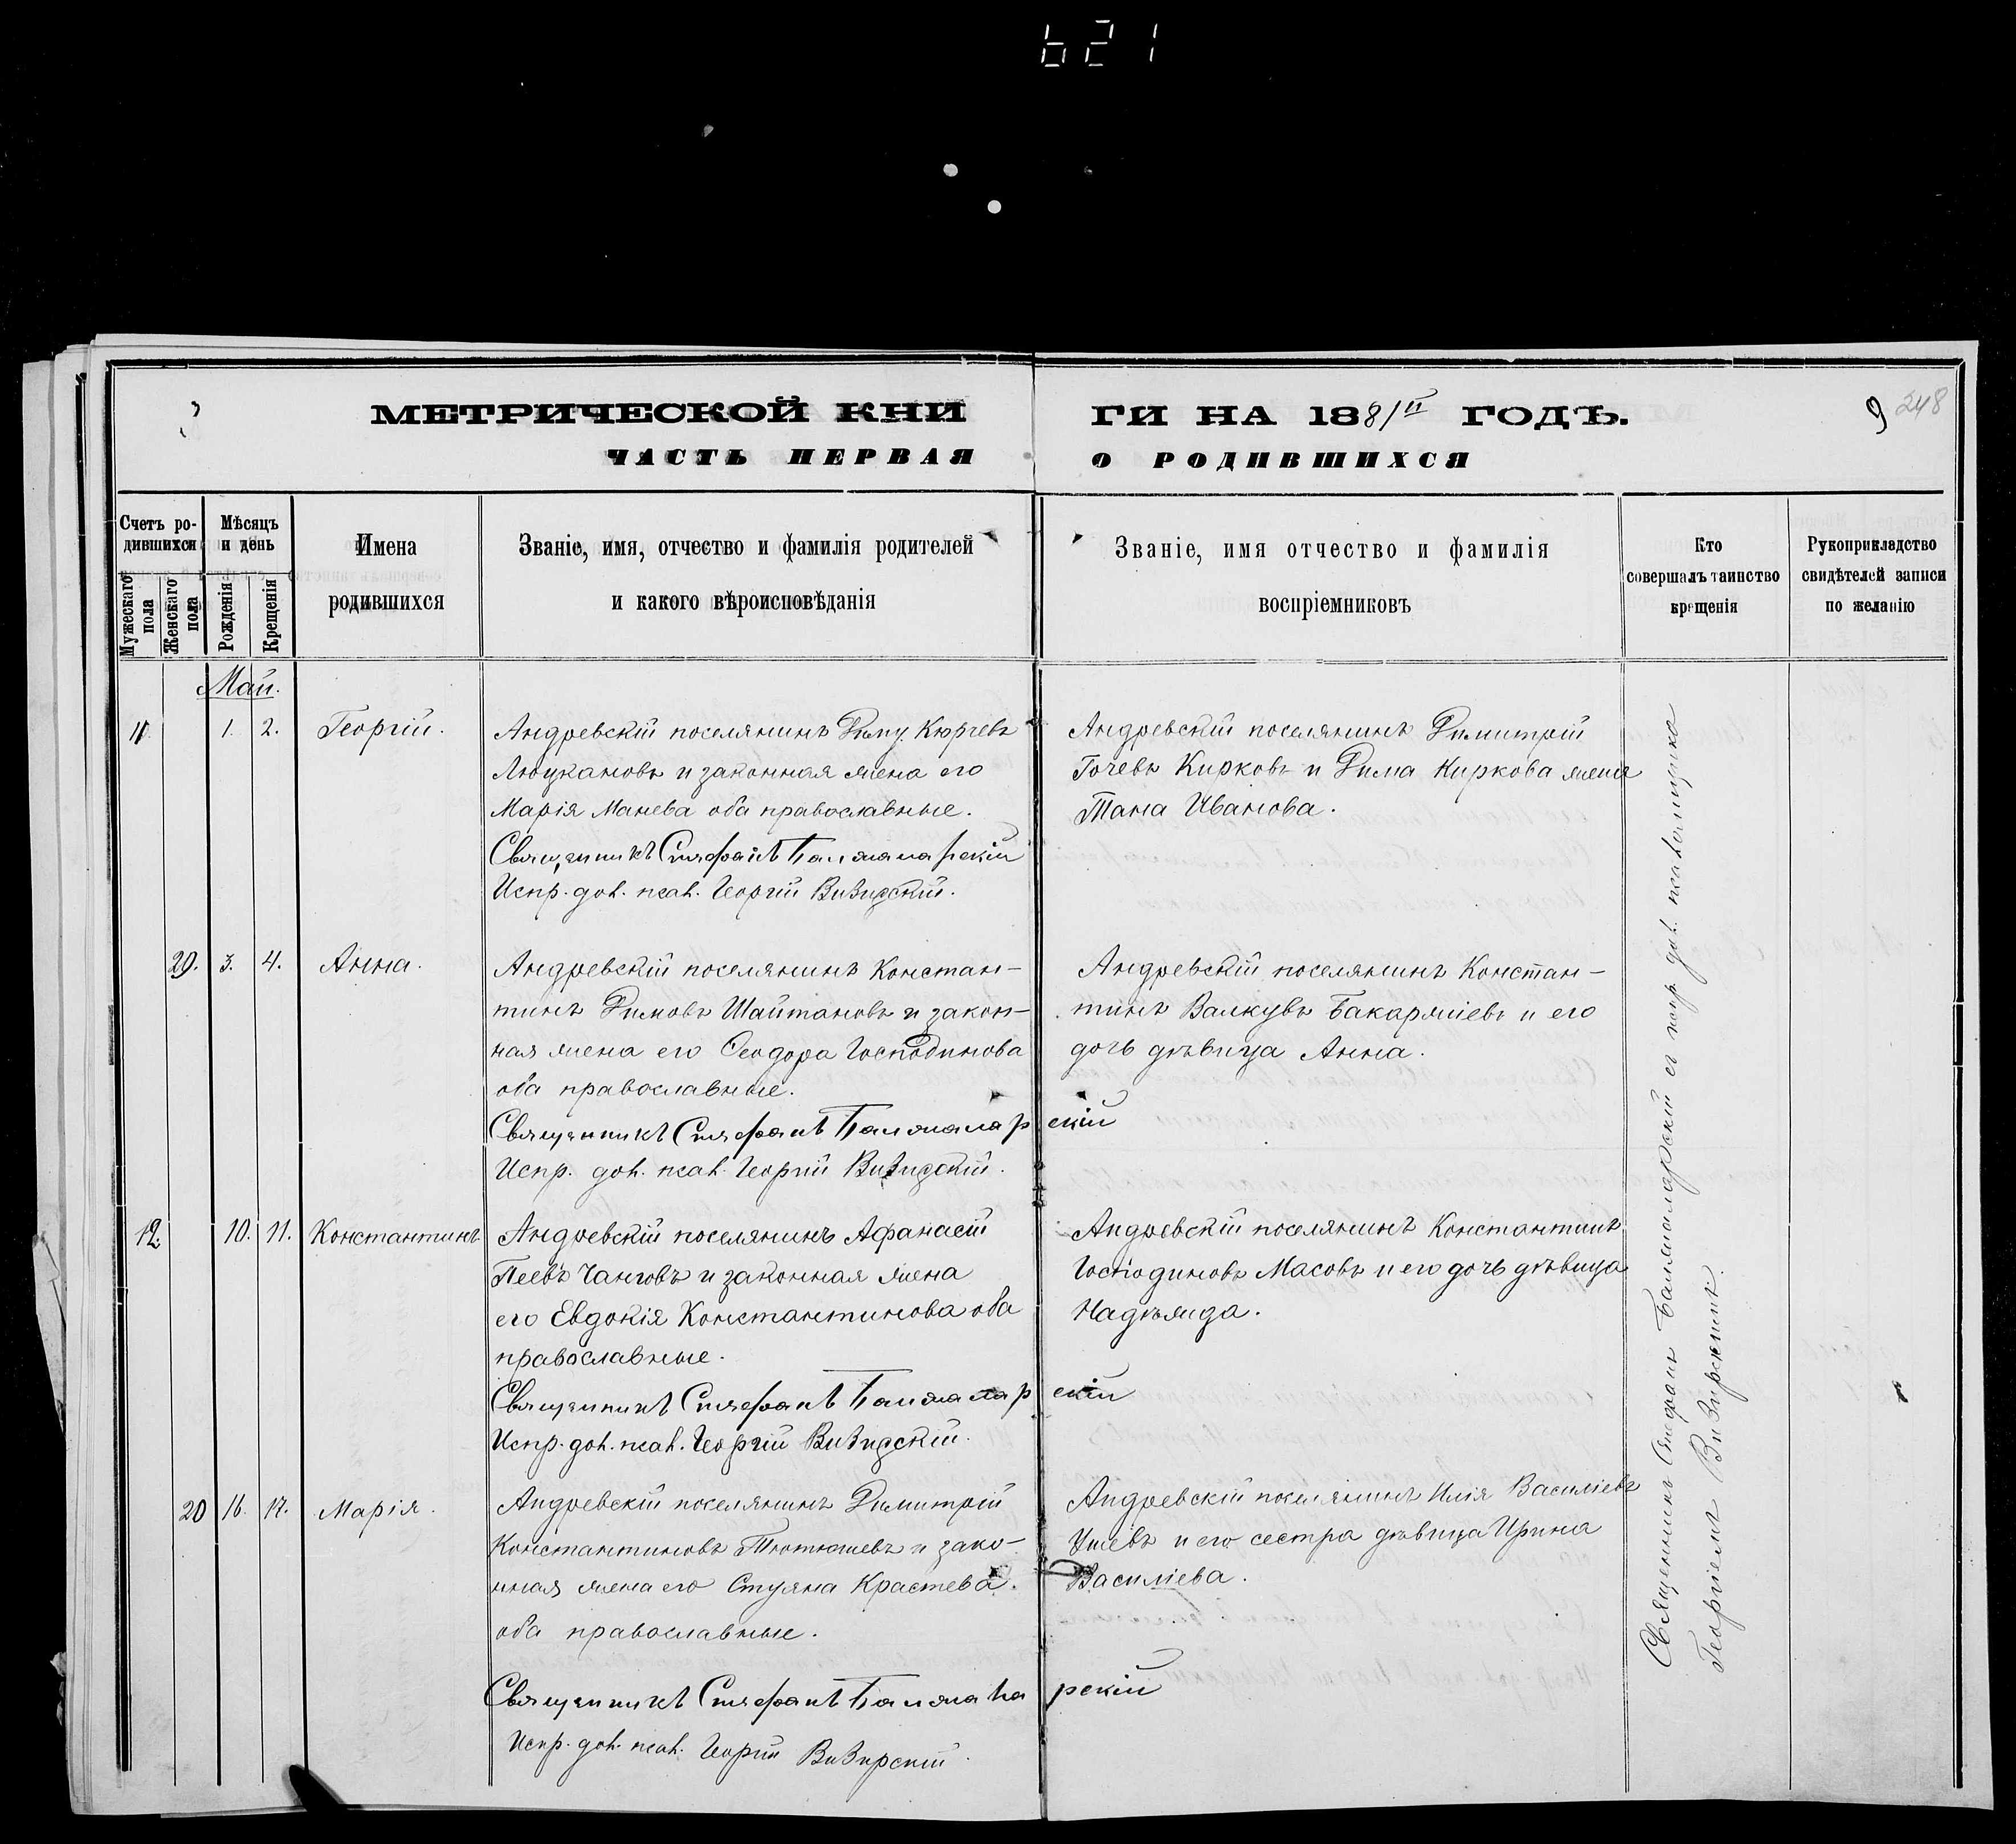 621
МЕТРИЧЕСКОЙ КНИ ГИ НА 1881й ГОДЪ.
9 248
ЧАСТЬ ПЕРВАЯ О РОДИВШИХСЯ
Счетъ ро-
дившихся
Мужескаго
пола
Женскаго
пола
Мѣсяцъ
и день
Рожденія
Крещенія
Имена
родившихся
Званіе, имя, отчество и фамилія родителей
и какого вѣроисповѣданія
Званіе, имя отчество и фамилія
воспріемниковъ
Кто
совершалъ таинство
крещенія
Рукоприкладство
свидѣтелей записи
по желанію
Май.
11 1. 2. Георгій.
Андреевскій поселянинъ Диму Кюрчевъ
Люцкановъ и законная жена его
Марія Манева оба православные.
Священникъ Стефанъ Балжаларскій
Испр. дол. псал. Георгій
Андреевскій поселянинъ Димитрій
Гочевъ Кирковъ и Дима Киркова жена
Тана Иванова.
29. 3. 4. Анна.
Андреевскій поселянинъ Констан-
тинъ Димовъ Шайтановъ и закон-
ная жена его Ѳеодора Господинова
оба православные.
Священникъ Стефанъ Балжаларскій
Испр. дол. псал. Георгій
Андреевскій поселянинъ Констан-
тинъ Валкувъ Бакаржіевъ и его
дочь дѣвица Анна.
12. 10. 11. Константинъ
Андреевскій поселянинъ Афанасій
Пеевъ Чанговъ и законная жена
его Евдокія Константинова оба
православные.
Священникъ Стефанъ Балжаларскій
Испр. дол. псал. Георгій
Андреевскій поселянинъ Константинъ
Господиновъ Масовъ и его дочь дѣвица
Надѣжда.
20 16. 17. Марія.
Андреевскій поселянинъ Димитрій
Константиновъ Тютюжевъ и зако-
нная жена его Стуяна Крастева.
оба православные.
Священникъ Стефанъ Балжаларскій
Испр. дол. псал. Георгій
Андреевскій поселянинъ Илія Василіевъ
и его сестра дѣвица Ирина
Василіева.
Священникъ Стефанъ Балжаларскій съ испр. дол. псаломщика
Георгіемъ